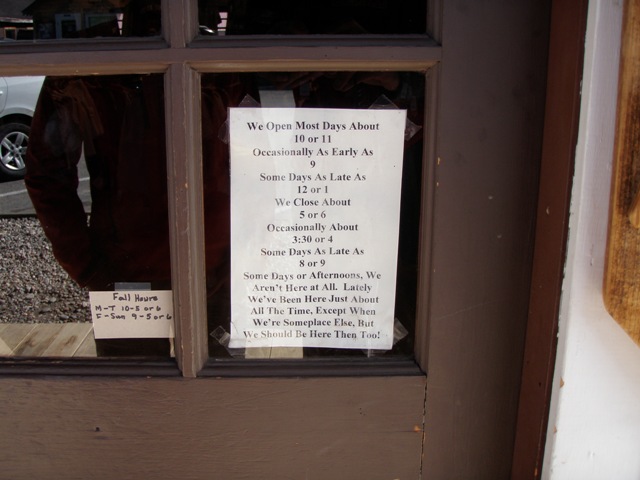 We Open Most Days About
10 or 11
Occasionally As Early As
9
Some Days As Late As
12 or 1
We Close About
5 or 6
Occasionally About
3:30 or 4
Some Days As Late As
8 or 9
Some Days or Afternoons, We
Aren't Here at All. Lately
We've Been Here Just About
All The Time, Except When
We're Someplace Else, But
We Should Be Here Then Too!
Fall Hours
M-T 10-5 or 6
F-Sun 9-5 or 6